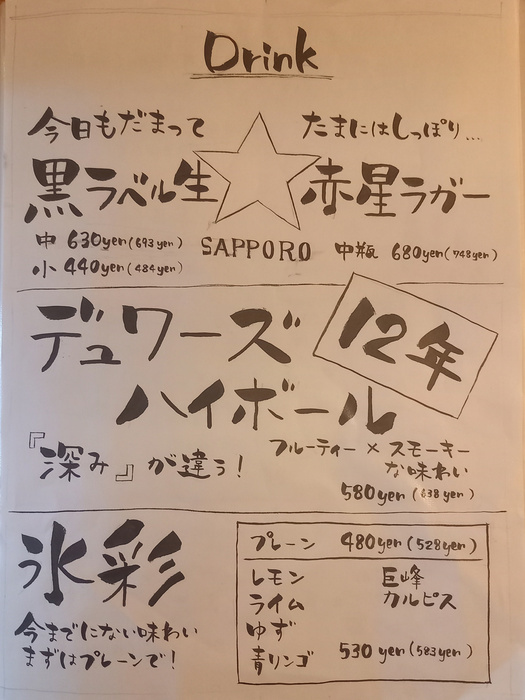 Drink
今日もだまって
黒ラベル生
中 630yen(693yen)
小 440yen(484yen)
SAPPORO
たまにはしっぽり...
赤星ラガー
中瓶 680yen(748yen)
デュワーズ
12年
ハイボール
『深み』が違う!
フルーティー×スモーキー
な味わい
580yen(638yen)
氷彩
今までにない味わい
まずはプレーンで!
プレーン 480yen(528yen)
レモン 巨峰
ライム カルピス
ゆず
青リンゴ 530yen(583yen)